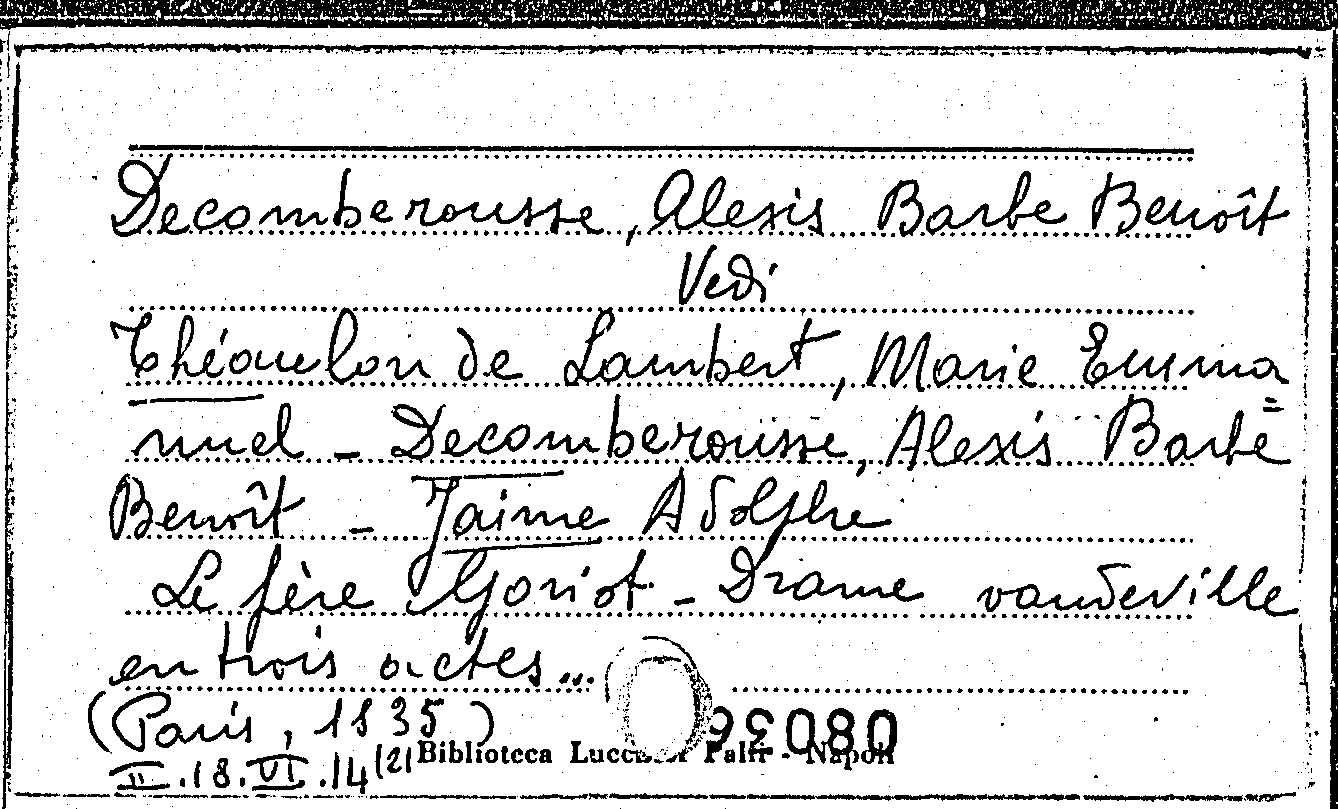 Decomberousse, Alexis Barbe Benoît
Vedi
Théaulon de Lambert, Marie Emma=
nuel - Decomberousse, Alexis Barbe
Benoît - Jaime Adolphe
Le père Goriot - Drame vaudeville
en trois actes...
(Paris, 1835)
II.18.VI.14(2)
Biblioteca Lucchesi Palli - Napoli